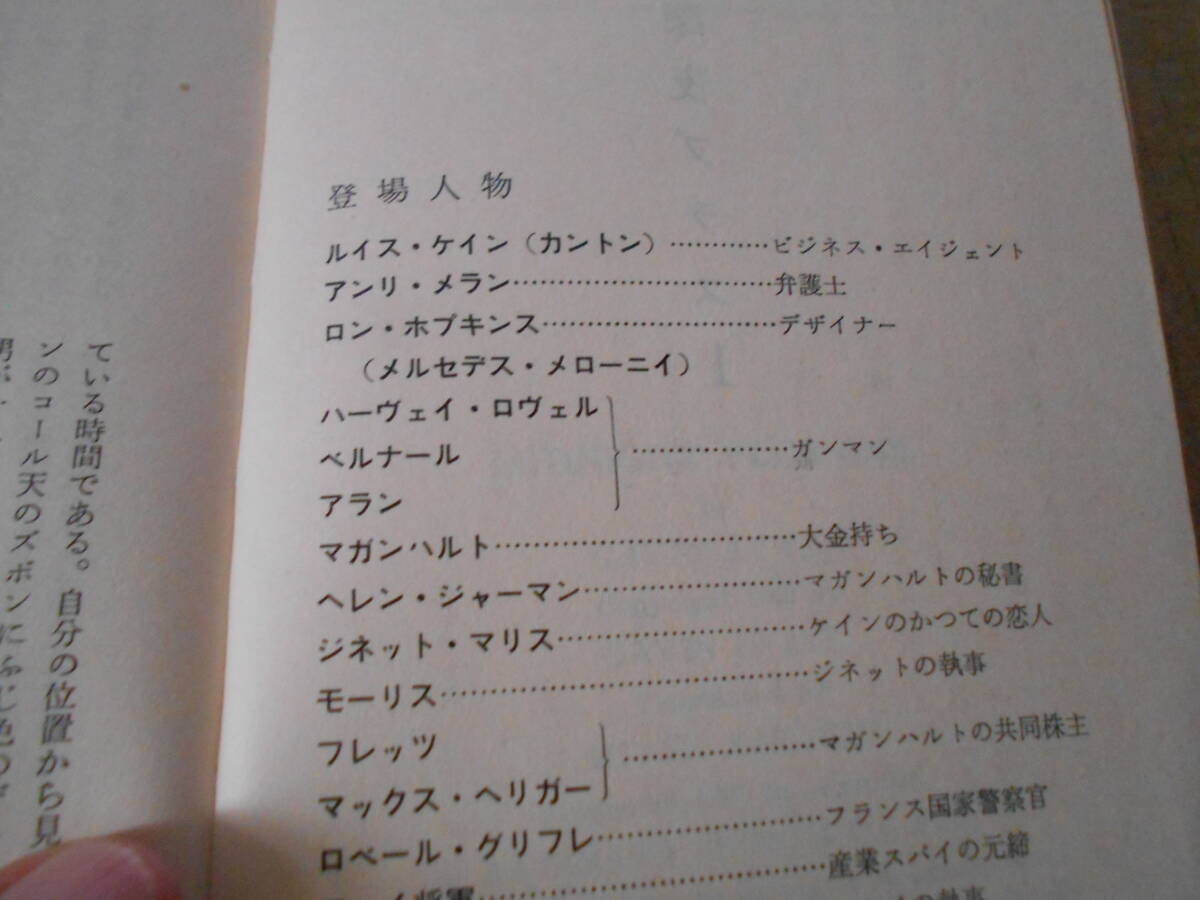 登場人物
ルイス・ケイン（カントン）…………ビジネス・エイジェント
アンリ・メラン…………………………弁護士
ロン・ホプキンス………………………デザイナー
（メルセデス・メローニイ）
ハーヴェイ・ロヴェル
ベルナール………………ガンマン
アラン
マガンハルト……………………………大金持ち
ヘレン・ジャーマン……………………マガンハルトの秘書
ジネット・マリス………………………ケインのかつての恋人
モーリス…………………………………ジネットの執事
フレッツ
マックス・ヘリガー
…………………マガンハルトの共同株主
ロベール・グリフレ……………………フランス国家警察官
将軍…………………………………産業スパイの元締
の執事
ている時間である。自分の位置から見
ンのコール天のズボンにふじ色の